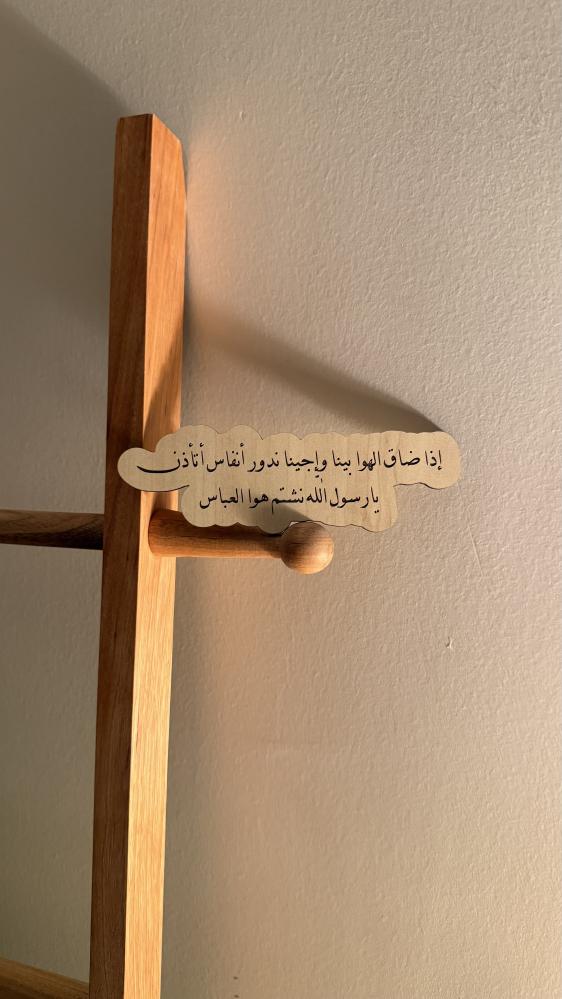 إذا ضاق الهوا بينا وإجينا ندور أنفاس أتأذن
يا رسول الله نشتم هوا العباس